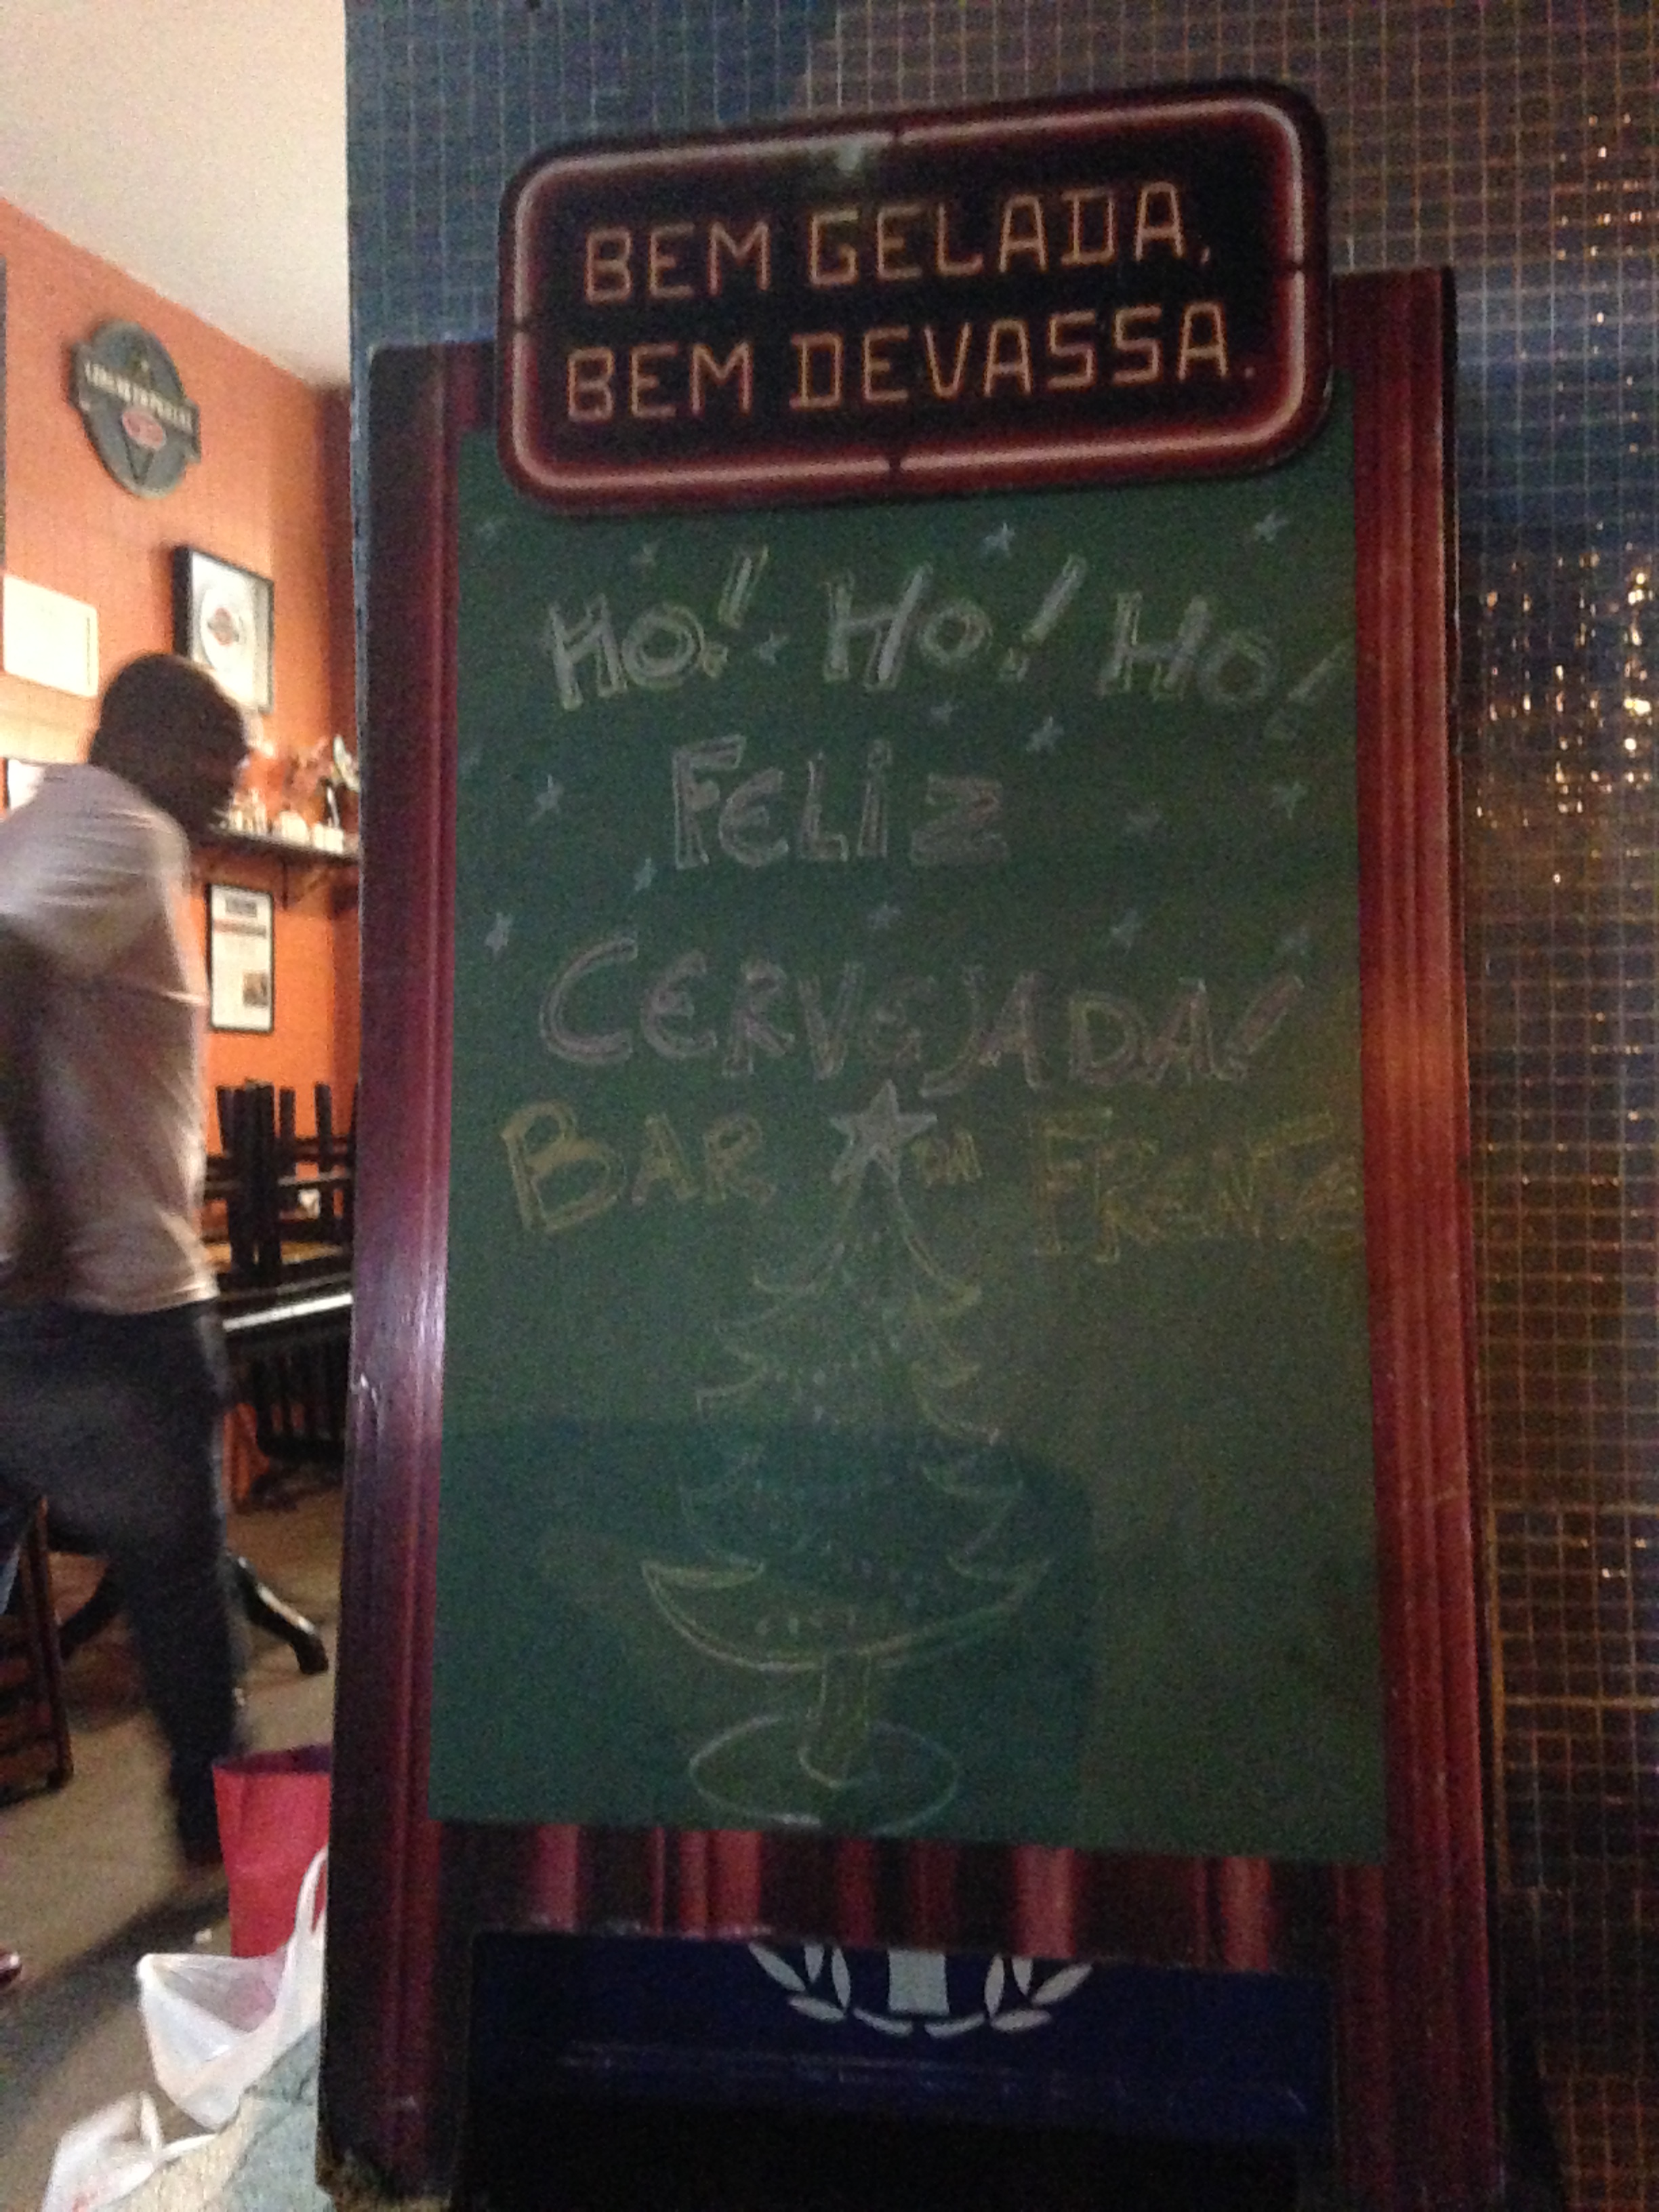 BEM GELADA,
BEM DEVASSA.
HO! HO! HO!
FELIZ
CERVEJADA!
BAR DA FRENTE